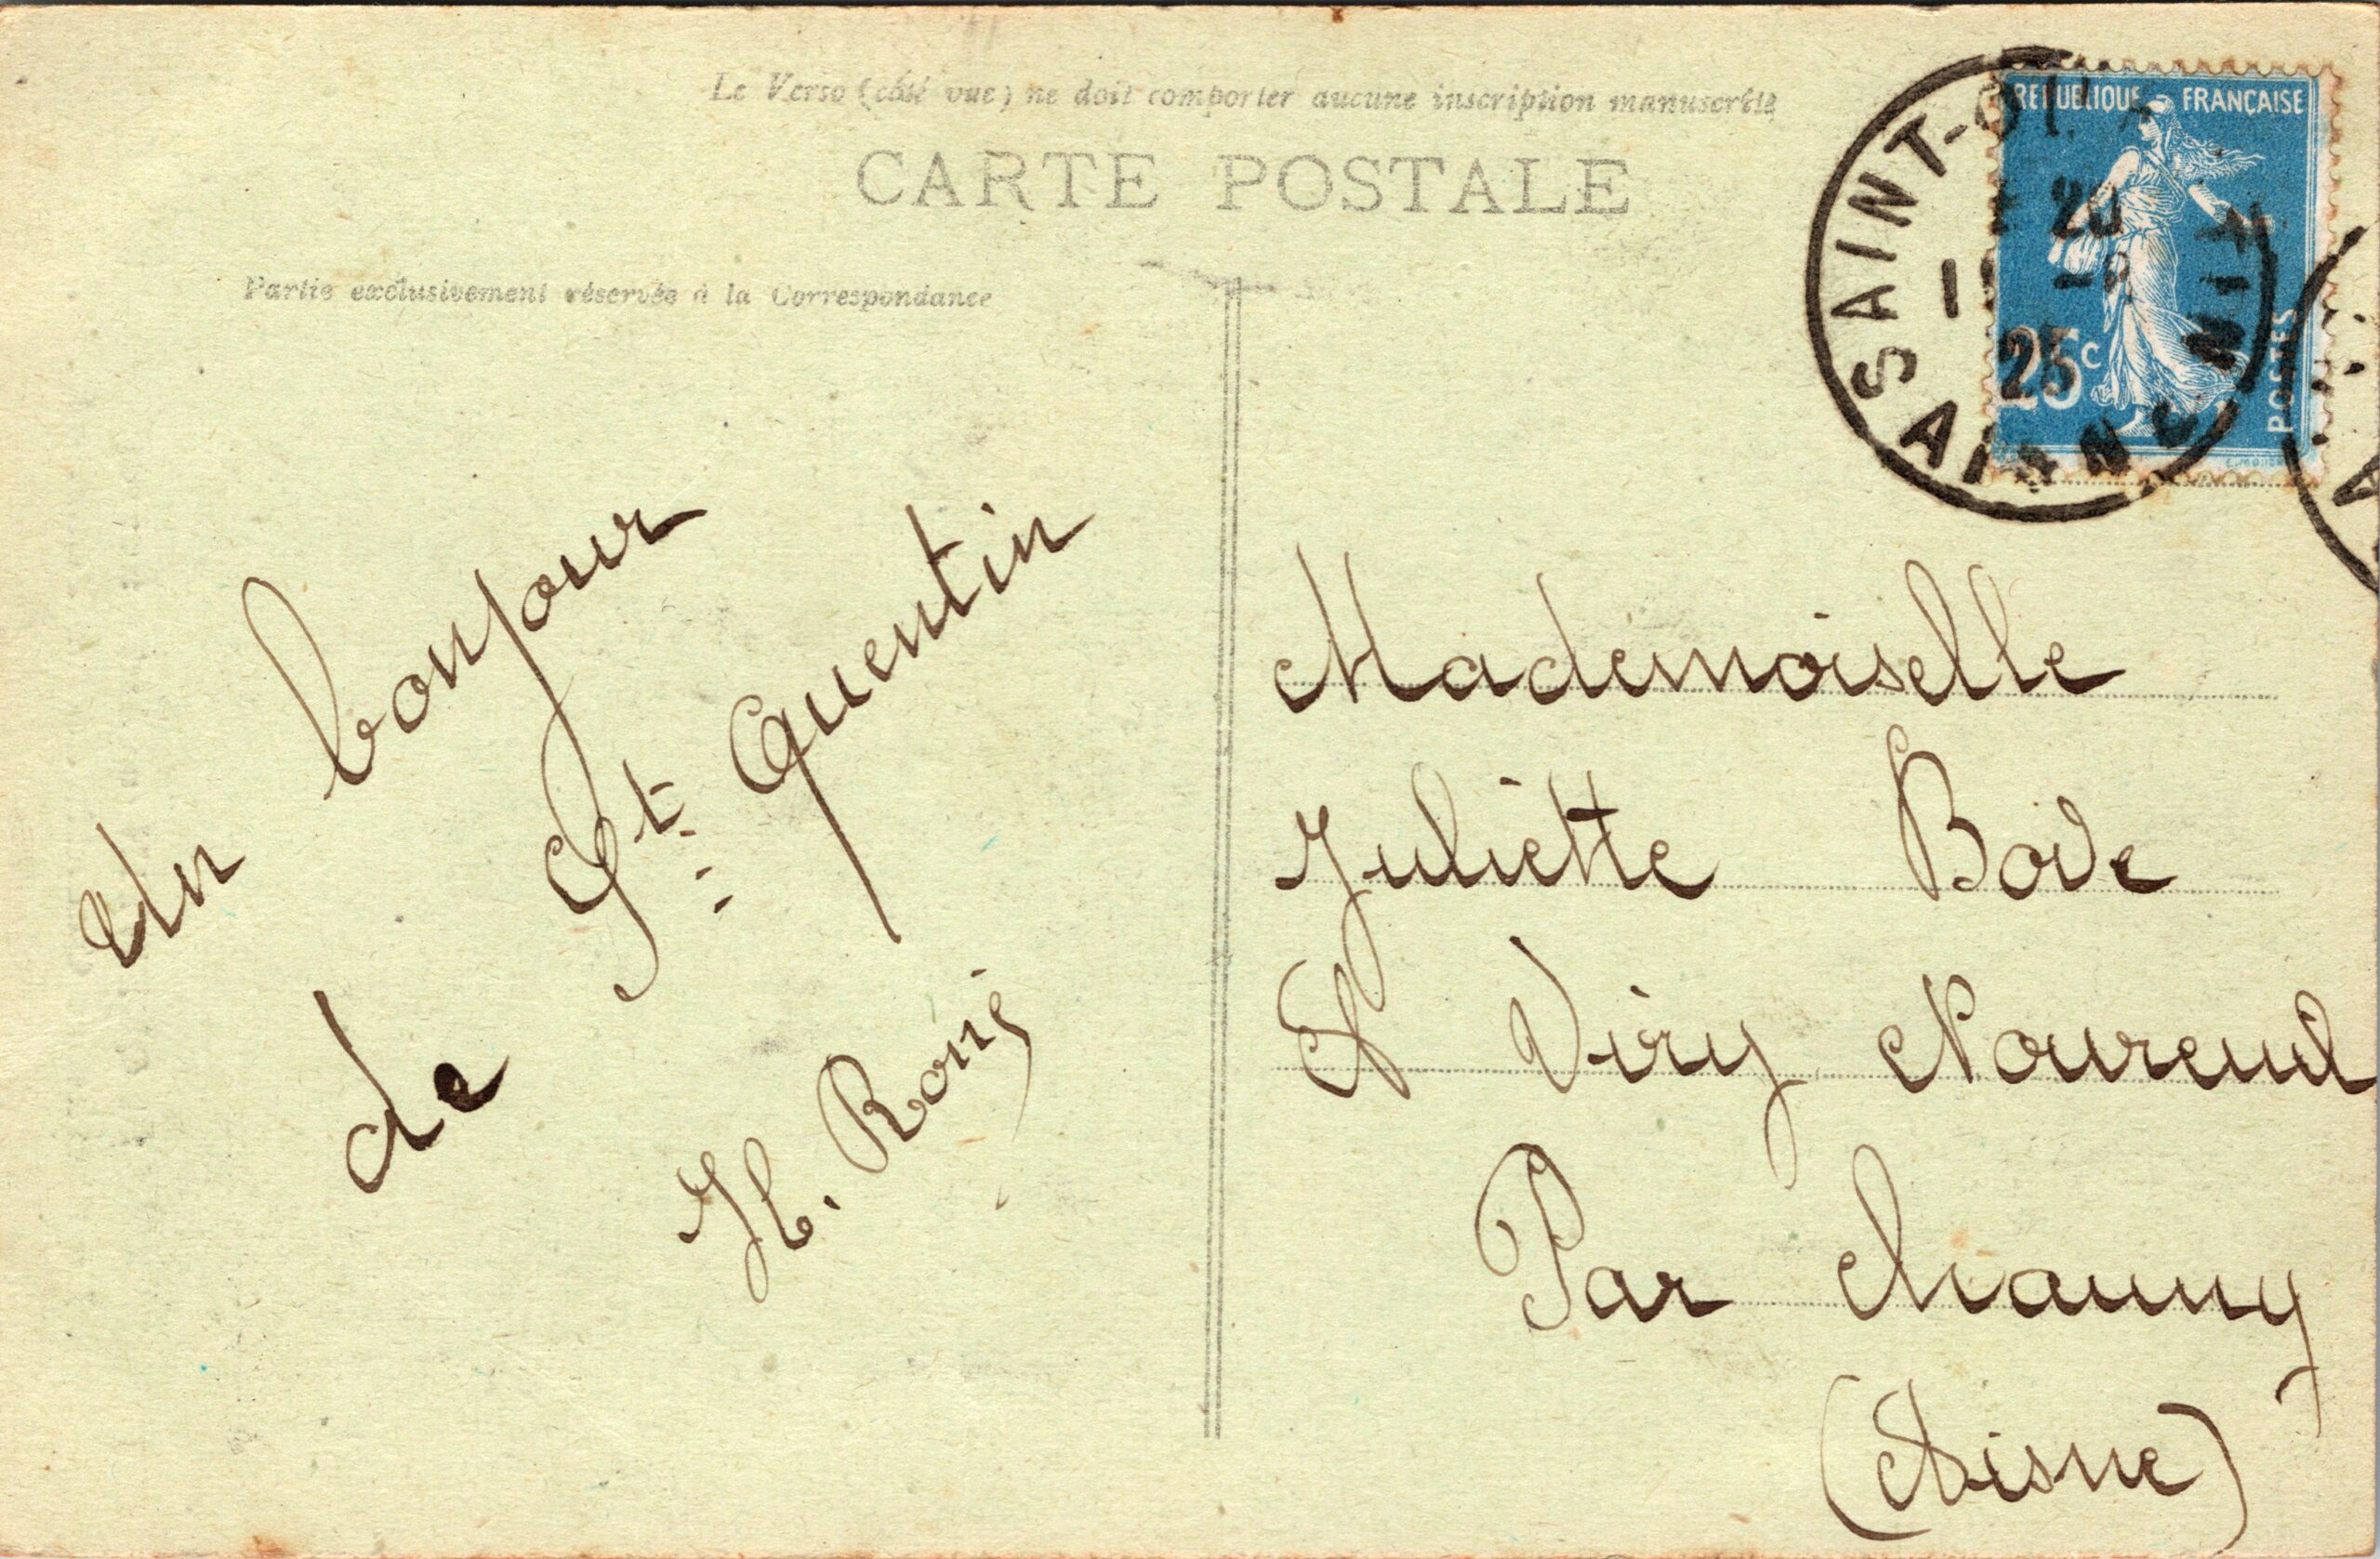 Le Verso (côté vue) ne doit comporter aucune inscription manuscrite
CARTE POSTALE
Partie exclusivement réservée à la Correspondance
REPUBLIQUE FRANÇAISE
25c
POSTES
SAINT-QUENTIN
AISNE
20
25
Un bonjour
de St Quentin
H.
Mademoiselle
Juliette Bove
A Viry Noureuil
Par Chauny
(Aisne)